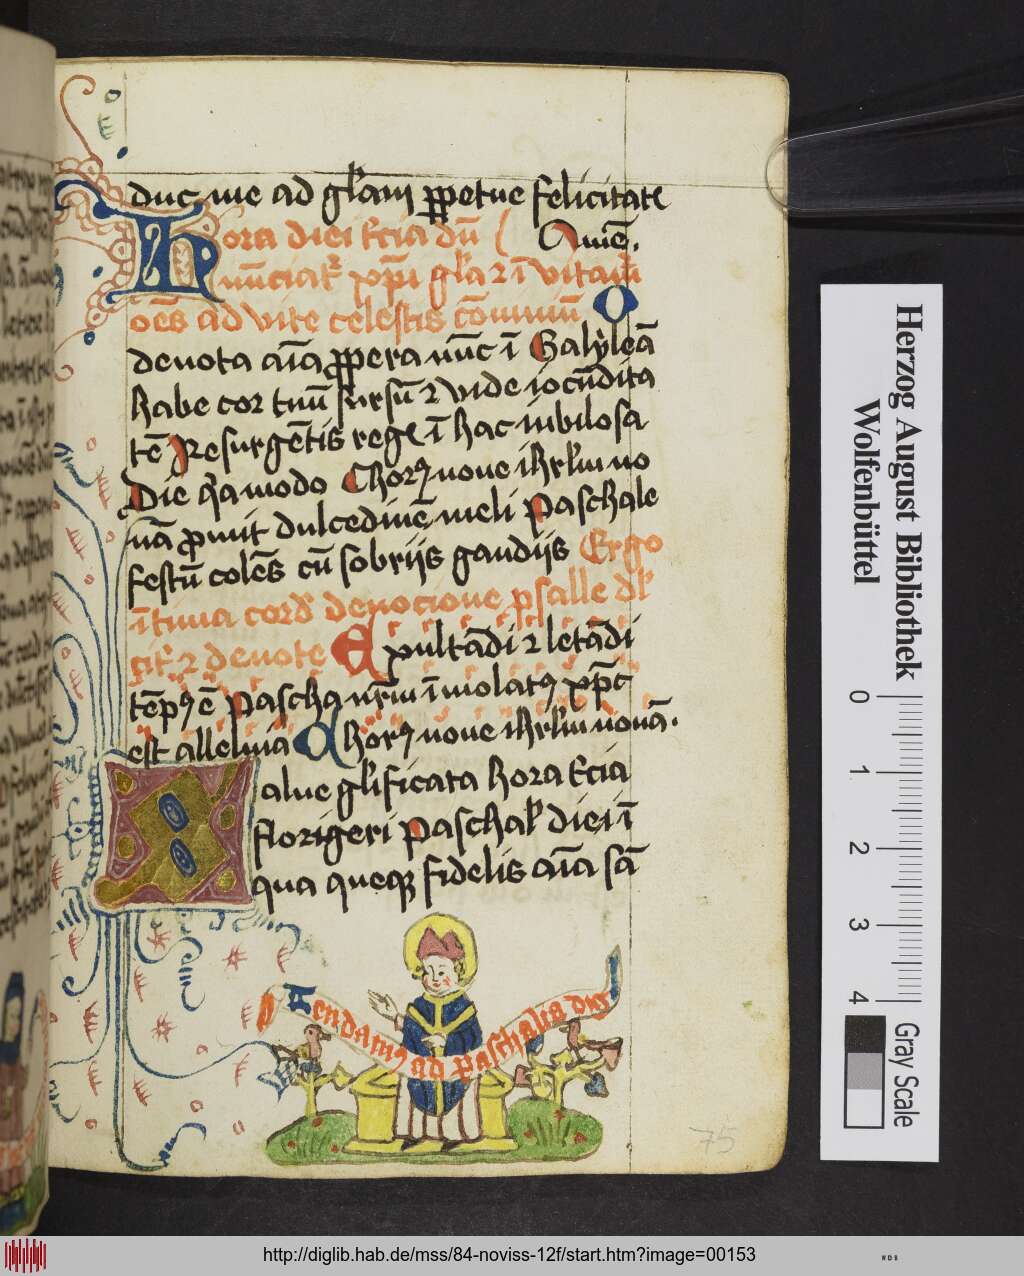 duc me ad gl̄am ꝑpetue felicitatꝭ
Hora diei t̄cia dn̄i Amē.
nūciat᷑ xp̄i gl̄a ꝛ ī vitauit
oēs ad vite celestis cōmuniū O
deuota aīa ꝓpera nūc ī Galyleā
habe cor tuū sursū ꝛ vide iocūdita
tē Resurgētis regꝭ ī hac iubilosa
Die q̄a modo Chorꝰ noue ihrl̄m no
uā ꝓmit dulcedinē meli Paschale
festū colēs cū sobrijs gaudijs Ergo
ītima cordꝭ deuocione psalle dl̄
git᷑ ꝛ deuote Exultādi ꝛ letādi
tēpꝰ ē Pascha nr̄m īmolatꝰ xp̄c
est alleluia Chorꝰ noue ihrl̄m nouā.
alue gl̄ificata hora t̄cia
florigeri paschal̄ diei ī
qua queqꝫ fidelis aīa sā
Tendamꝰ ad paschalia dn̄s
75
Herzog August Bibliothek
Wolfenbüttel
0 1 2 3 4
Gray Scale
http://diglib.hab.de/mss/84-noviss-12f/start.htm?image=00153